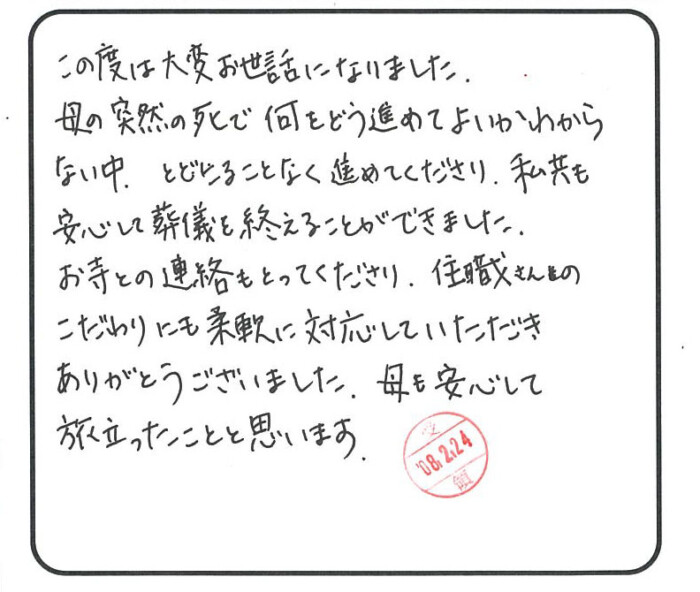 この度は大変お世話になりました.
母の突然の死で何をどう進めてよいかわから
ない中. とどこることなく進めてくださり. 私共も
安心して葬儀を終えることができました.
お寺との連絡もとってくださり. 住職さんの
こだわりにも柔軟に対応していただき
ありがとうございました. 母も安心して
旅立ったことと思います.
'08.2.24